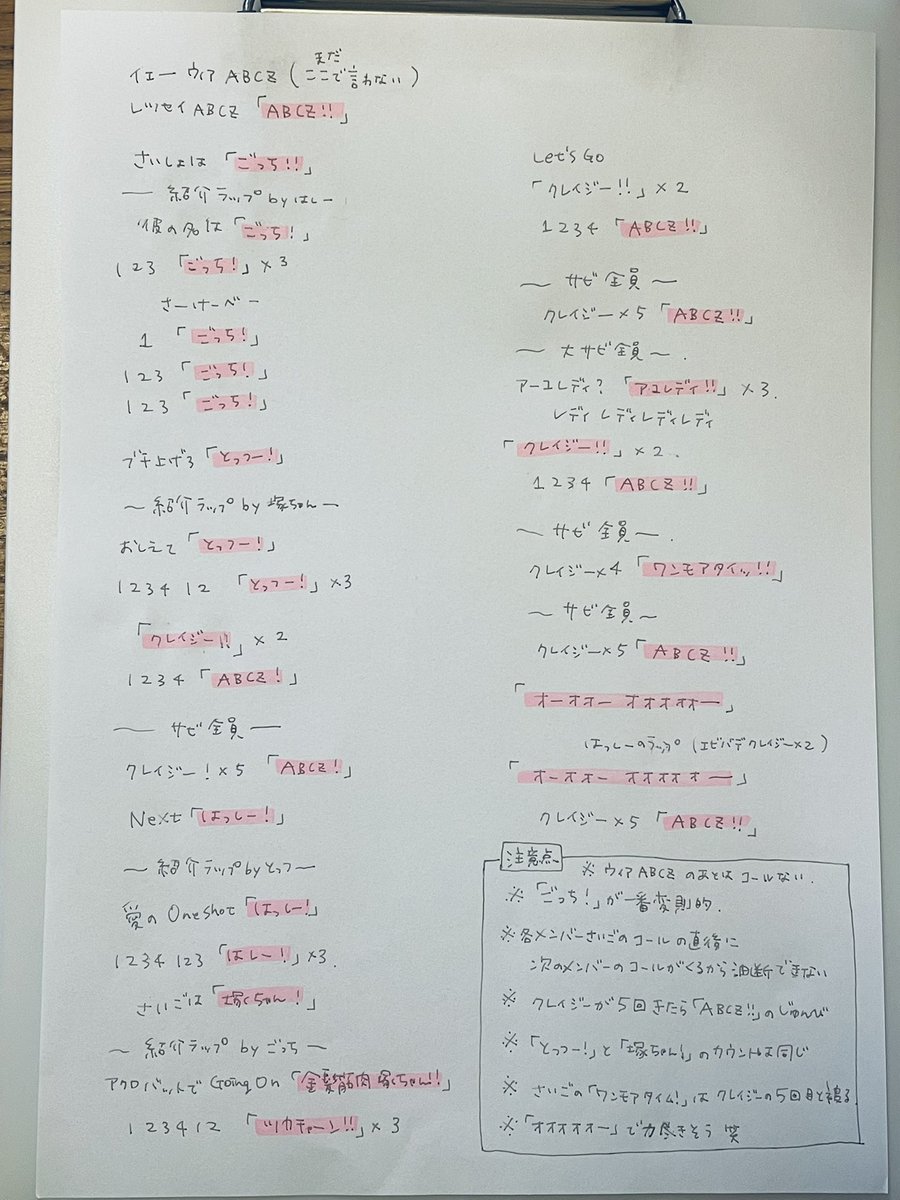 イエー ウィア ABCZ (まだここで言わない)
レッツセイ ABCZ 「ABCZ!!」
さいしょは 「ごっち!!」
― 紹介ラップ by はしー
彼の名は 「ごっち!」
1 2 3 「ごっち!」×3
さーけーべー
1 「ごっち!」
1 2 3 「ごっち!」
1 2 3 「ごっち!」
ブチ上げろ 「とっつー!」
～ 紹介ラップ by 塚ちゃん ～
おしえて 「とっつー!」
1 2 3 4 1 2 「とっつー!」×3
「クレイジー!!」×2
1 2 3 4 「ABCZ!」
～ サビ 全員 ～
クレイジー!×5 「ABCZ!」
Next 「はっしー!」
～ 紹介ラップ by とっつ ～
愛の One shot 「はっしー!」
1 2 3 4 1 2 3 「はしー!」×3.
さいごは 「塚ちゃん!」
～ 紹介ラップ by ごっち ～
アクロバットで Going On 「金髪筋肉塚ちゃん!!」
1 2 3 4 1 2 「ツカチャーン!!」×3
Let's Go
「クレイジー!!」×2
1 2 3 4 「ABCZ!!」
～ サビ 全員 ～
クレイジー×5 「ABCZ!!」
～ 大サビ 全員 ～.
アーユレディ? 「アユレディ!!」×3.
レディ レディ レディ レディ
「クレイジー!!」×2.
1 2 3 4 「ABCZ!!」
～ サビ 全員 ～.
クレイジー×4 「ワンモアタイッ!!」
～ サビ 全員 ～
クレイジー×5 「ABCZ!!」
「オーオオー オオオオオー」
はっしーのラップ (エビバデクレイジー×2)
「オーオオー オオオオオー」
クレイジー×5 「ABCZ!!」
注意点
※ ウィア ABCZ のあとは コールない.
※ 「ごっち!」が一番変則的.
※ 各メンバーさいごのコールの直後に
次のメンバーのコールがくるから油断できない
※ クレイジーが5回きたら「ABCZ!!」のじゅんび
※ 「とっつー!」と「塚ちゃん!」のカウントは同じ
※ さいごの「ワンモアタイム!」はクレイジーの5回目と被る.
※ 「オオオオオー」で力尽きそう 笑